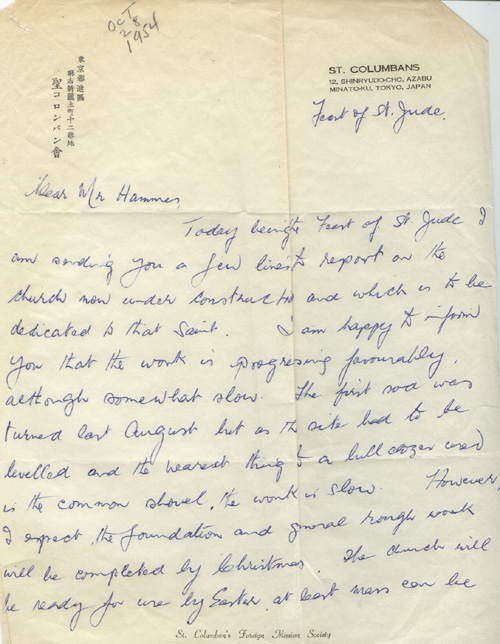 Oct
28
1954
東京都港區
麻布新龍土町十二番地
聖コロンバン會
ST. COLUMBANS
12, SHINRYUDO-CHO, AZABU
MINATO-KU, TOKYO, JAPAN
Feast of St. Jude.
Dear Mr Hammes,
Today being the Feast of St. Jude I
am sending you a few lines to report on the
church now under construction and which is to be
dedicated to that Saint. I am happy to inform
you that the work is progressing favourably,
although somewhat slow. The first sod was
turned last August but as the site had to be
levelled and the nearest thing to a bulldozer used
is the common shovel, the work is slow. However,
I expect the foundation and general rough work
will be completed by Christmas. The church will
be ready for use by Easter, at least mass can be
St. Columban's Foreign Mission Society